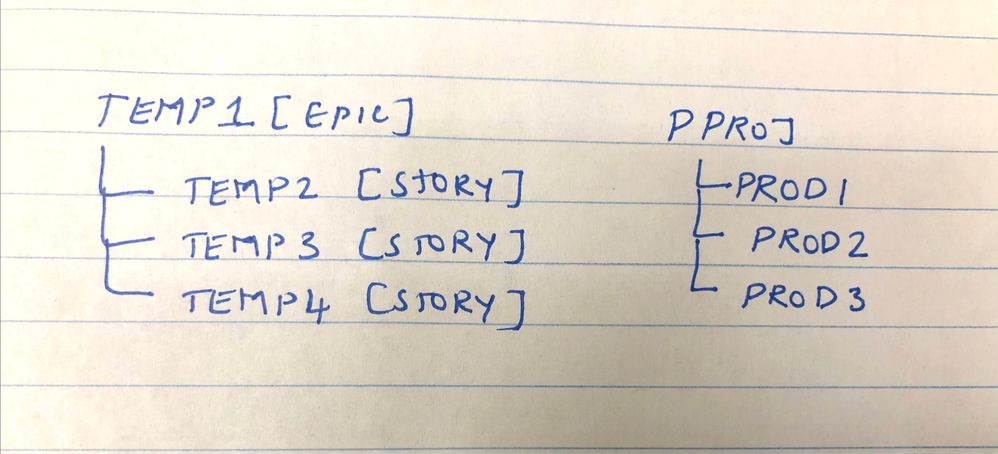 TEMP1 [EPIC]
TEMP2 [STORY]
TEMP3 [STORY]
TEMP4 [STORY]
PPROJ
PROD1
PROD2
PROD3